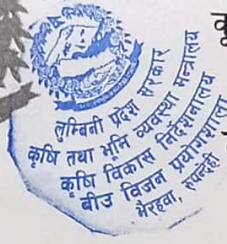 लुम्बिनी प्रदेश सरकार
कृषि तथा भूमि व्यवस्था मन्त्रालय
कृषि विकास निर्देशनालय
बीउ विजन प्रयोगशाला
भैरहवा, रुपन्देही